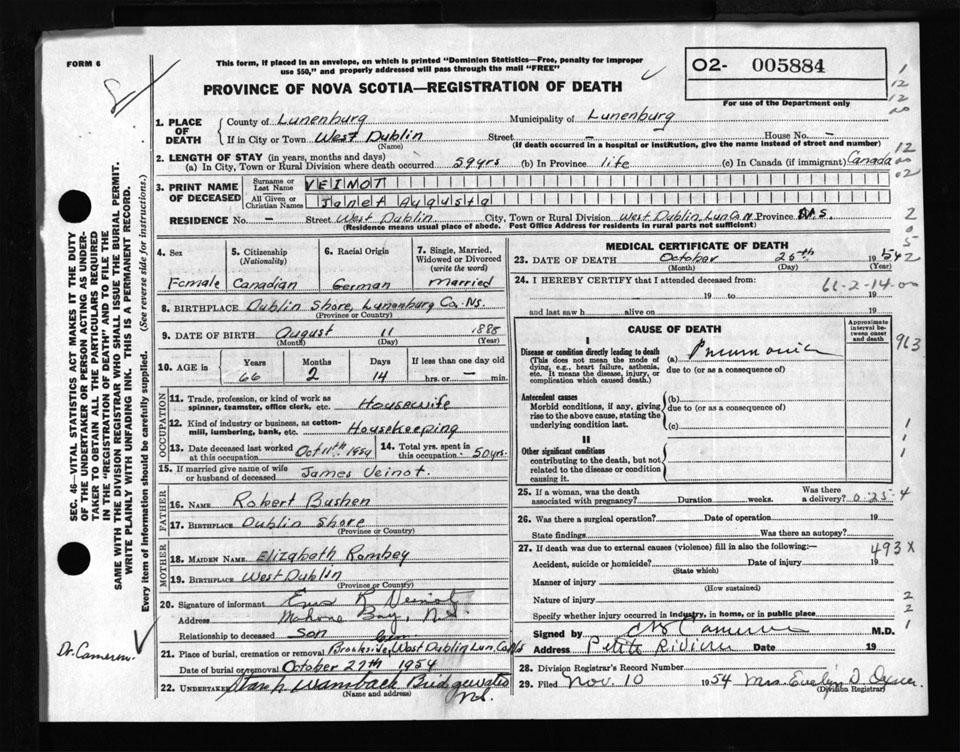 FORM 6
This form, if placed in an envelope, on which is printed "Dominion Statistics—Free, penalty for improper
use $50," and properly addressed will pass through the mail "FREE"
O2- 005884
For use of the Department only
PROVINCE OF NOVA SCOTIA—REGISTRATION OF DEATH
1. PLACE OF DEATH
County of Lunenburg Municipality of Lunenburg
If in City or Town West Dublin Street — House No. —
(Name) (If death occurred in a hospital or institution, give the name instead of street and number)
2. LENGTH OF STAY (in years, months and days)
(a) In City, Town or Rural Division where death occurred 59 yrs (b) In Province life (c) In Canada (if immigrant) Canada
3. PRINT NAME OF DECEASED
Surname or Last Name VEINOT
All Given or Christian Names Janet Augusta
RESIDENCE No. — Street West Dublin City, Town or Rural Division West Dublin, Lun Co N Province N.S.
(Residence means usual place of abode. Post Office Address for residents in rural parts not sufficient)
4. Sex
Female
5. Citizenship
(Nationality)
Canadian
6. Racial Origin
German
7. Single, Married, Widowed or Divorced
(write the word)
Married
8. BIRTHPLACE Dublin Shore, Lunenburg Co. Ns.
(Province or Country)
9. DATE OF BIRTH August 11 1888
(Month) (Day) (Year)
10. AGE in
Years Months Days If less than one day old
66 2 14 hrs. or — min.
OCCUPATION
11. Trade, profession, or kind of work as
spinner, teamster, office clerk, etc. Housewife
12. Kind of industry or business, as cotton-
mill, lumbering, bank, etc. Housekeeping
13. Date deceased last worked
at this occupation Oct 11th 1954
14. Total yrs. spent in
this occupation 50 yrs.
15. If married give name of wife
or husband of deceased James Veinot.
FATHER
16. NAME Robert Bushen
17. BIRTHPLACE Dublin Shore
(Province or Country)
MOTHER
18. MAIDEN NAME Elizabeth Romkey
19. BIRTHPLACE West Dublin
(Province or Country)
20. Signature of informant R Veinot
Address Mahone Bay, N.S.
Relationship to deceased son
21. Place of burial, cremation or removal Brookside Cem West Dublin Lun. Co Ns
Date of burial or removal October 27th 1954
22. UNDERTAKER Wamback Bridgewater
N.S.
(Name and address)
MEDICAL CERTIFICATE OF DEATH
23. DATE OF DEATH October 25th 1954
(Month) (Day) (Year)
24. I HEREBY CERTIFY that I attended deceased from:
19 to 19
and last saw h alive on 19
CAUSE OF DEATH
Approximate interval between onset and death
I
Disease or condition directly leading to death (a) Pneumonia
(This does not mean the mode of
dying, e.g., heart failure, asthenia,
etc. It means the disease, injury, or
complication which caused death.)
due to (or as a consequence of)
Antecedent causes
Morbid conditions, if any, giving
rise to the above cause, stating the
underlying condition last.
(b)
due to (or as a consequence of)
(c)
II
Other significant conditions
contributing to the death, but not
related to the disease or condition
causing it.
25. If a woman, was the death
associated with pregnancy? Duration weeks. Was there
a delivery?
26. Was there a surgical operation? Date of operation 19
State findings Was there an autopsy?
27. If death was due to external causes (violence) fill in also the following:—
Accident, suicide or homicide? Date of injury 19
(State which)
Manner of injury
(How sustained)
Nature of injury
Specify whether injury occurred in industry, in home, or in public place
Signed by Cameron M.D.
Address Petite Riviere
28. Division Registrar's Record Number
29. Filed Nov. 10 1954 Mrs. Evelyn D. Oxner
(Division Registrar)
963
493 X
SEC. 46—VITAL STATISTICS ACT MAKES IT THE DUTY
OF THE UNDERTAKER OR PERSON ACTING AS UNDER-
TAKER TO OBTAIN ALL THE PARTICULARS REQUIRED
IN THE "REGISTRATION OF DEATH" AND TO FILE THE
SAME WITH THE DIVISION REGISTRAR WHO SHALL ISSUE THE BURIAL PERMIT.
WRITE PLAINLY WITH UNFADING INK. THIS IS A PERMANENT RECORD.
Every item of information should be carefully supplied. (See reverse side for instructions.)
Dr. Cameron